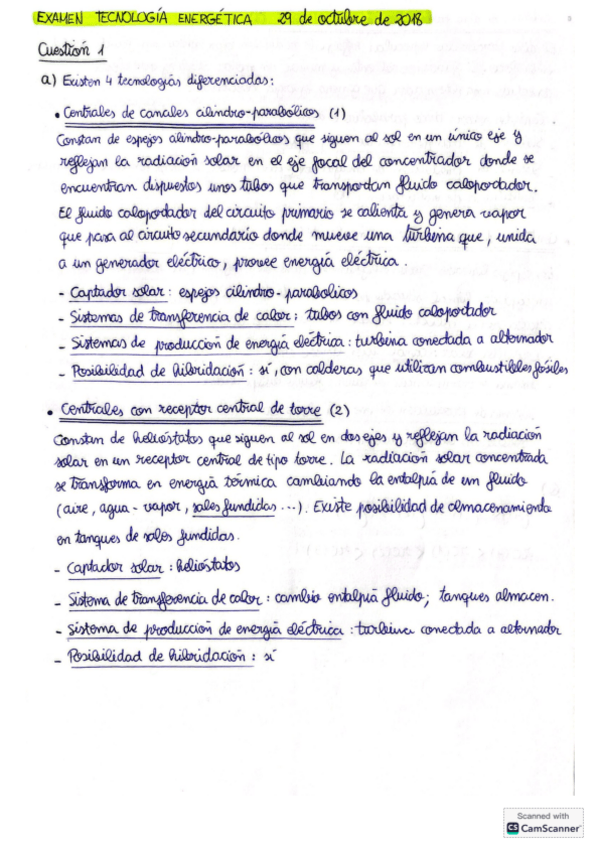 EXAMEN TECNOLOGÍA ENERGÉTICA 29 de octubre de 2018
Cuestión 1
a) Existen 4 tecnologías diferenciadas:
• Centrales de canales cilindro-parabólicos (1)
Constan de espejos cilindro-parabólicos que siguen al sol en un único eje y
reflejan la radiación solar en el eje focal del concentrador donde se
encuentran dispuestos unos tubos que transportan fluido caloportador.
El fluido caloportador del circuito primario se calienta y genera vapor
que pasa al circuito secundario donde mueve una turbina que, unida
a un generador eléctrico, provee energía eléctrica.
- Captador solar: espejos cilindro-parabólicos
- Sistemas de transferencia de calor: tubos con fluido caloportador
- Sistemas de producción de energía eléctrica: turbina conectada a alternador
- Posibilidad de hibridación: sí, con calderas que utilizan combustibles fósiles
• Centrales con receptor central de torre (2)
Constan de helióstatos que siguen al sol en dos ejes y reflejan la radiación
solar en un receptor central de tipo torre. La radiación solar concentrada
se transforma en energía térmica cambiando la entalpía de un fluido
(aire, agua-vapor, sales fundidas ...). Existe posibilidad de almacenamiento
en tanques de sales fundidas.
- Captador solar: helióstatos
- Sistema de transferencia de calor: cambio entalpía fluido; tanques almacen.
- Sistema de producción de energía eléctrica: turbina conectada a alternador
- Posibilidad de hibridación: sí
Scanned with
CS CamScanner